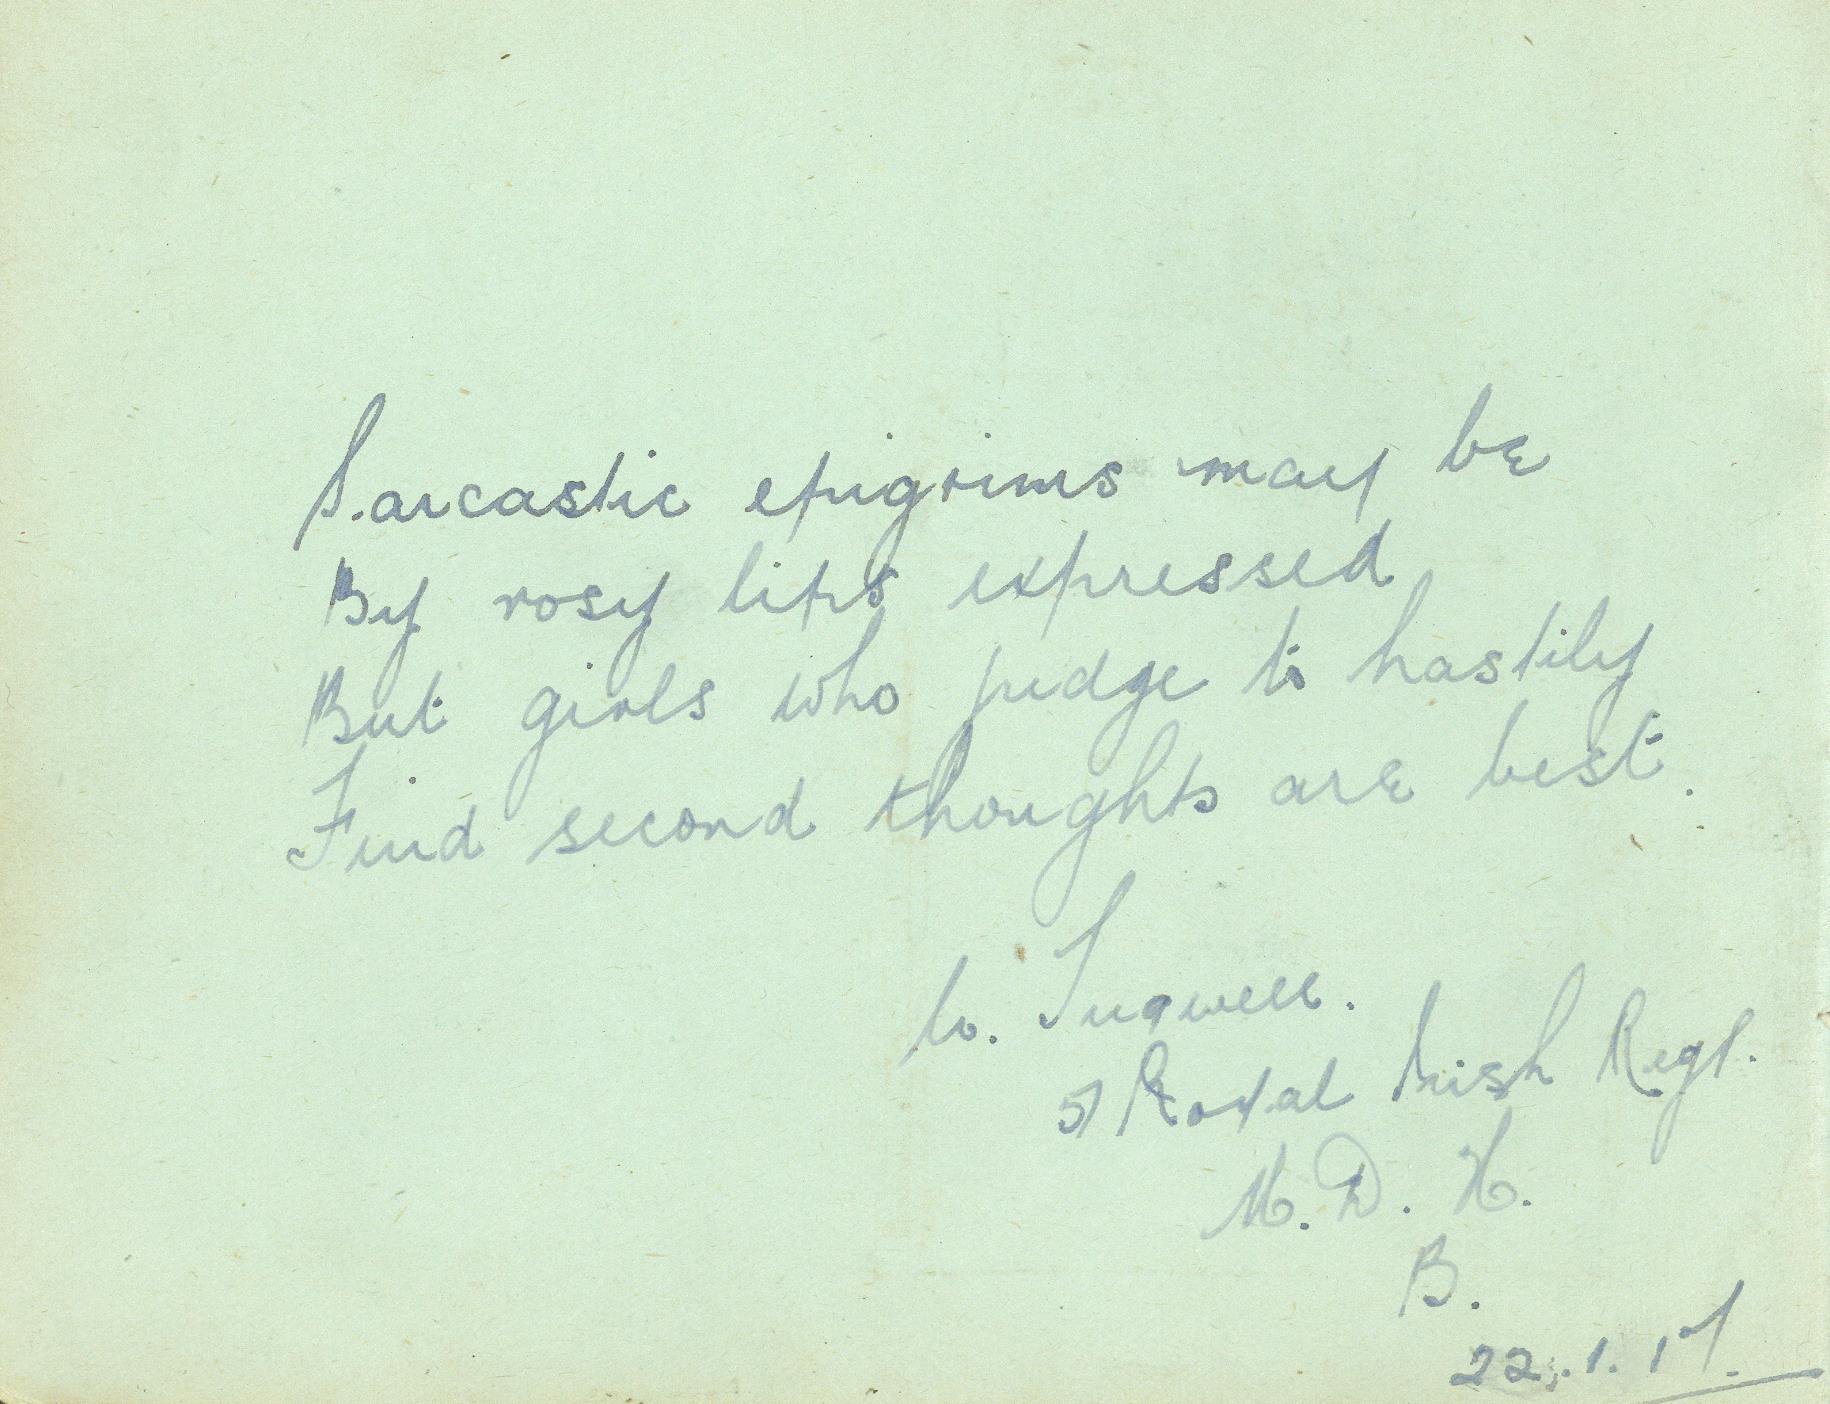 Sarcastic epigrims may be
By rosy lips expressed
But girls who judge to hastily
Find second thoughts are best.
Tugwell.
5/ Royal Irish Regt.
M. D. H.
B.
22.1.17.